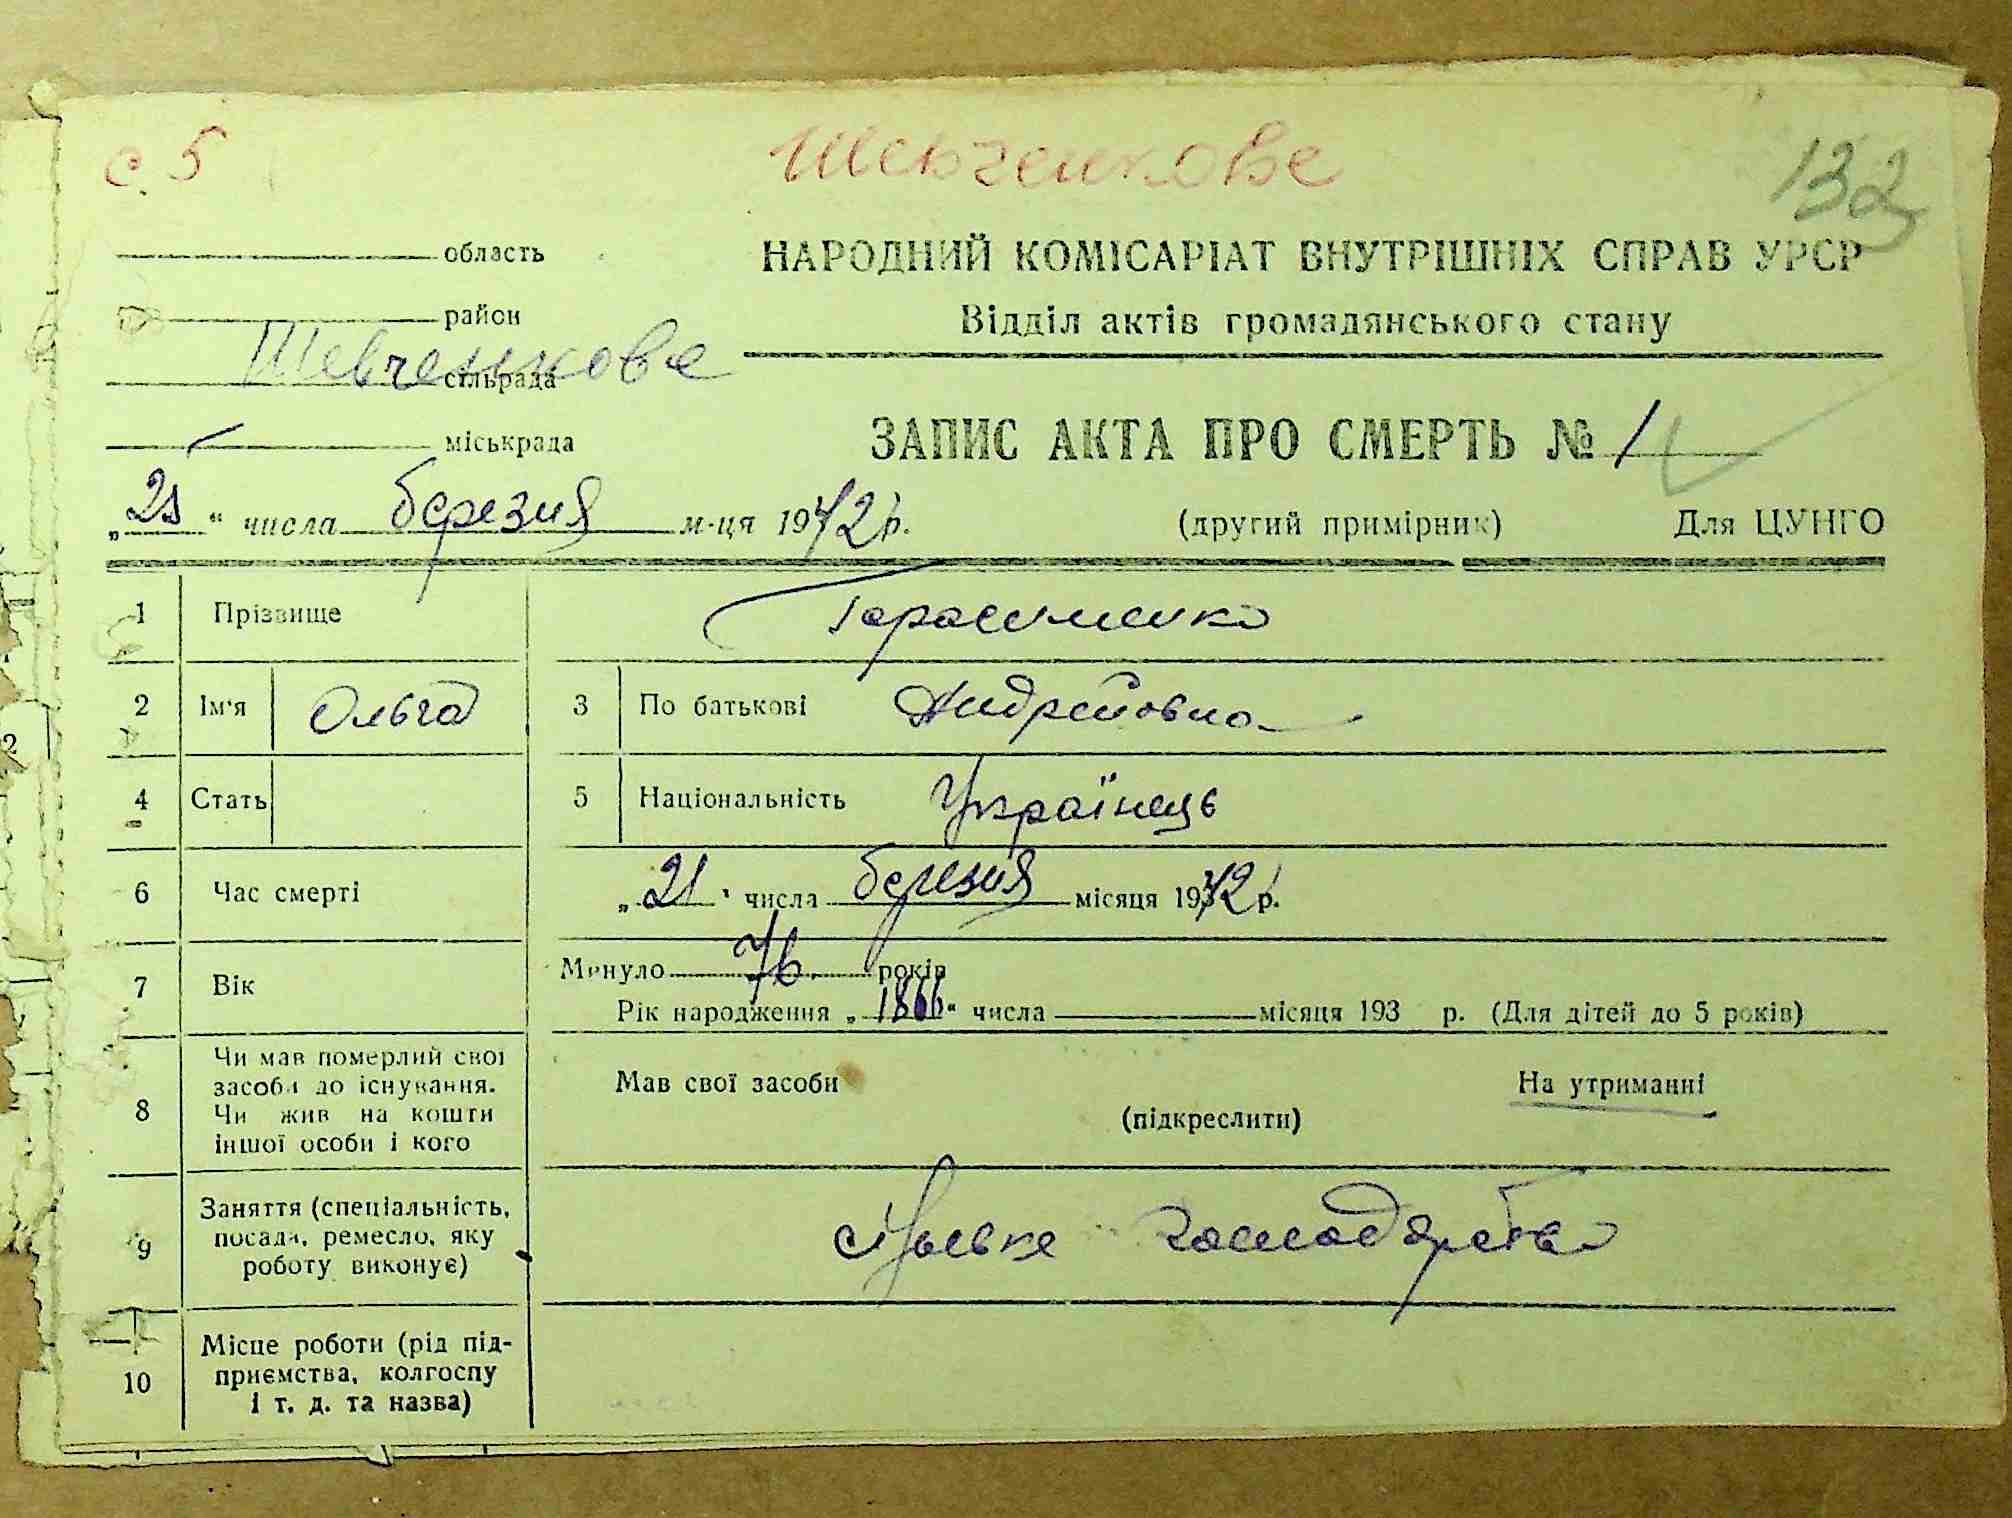 с. 5
Шевченкове
132
область
НАРОДНИЙ КОМІСАРІАТ ВНУТРІШНІХ СПРАВ УРСР
район
Відділ актів громадянського стану
Шевченкове сільрада
міськрада
ЗАПИС АКТА ПРО СМЕРТЬ № 1
„ " числа березня м-ця 1942 р.
(другий примірник) Для ЦУНГО
1 Прізвище Герасименко
2 Ім'я Ольга 3 По батькові Андріївна
4 Стать 5 Національність Українець
6 Час смерті „21" числа березня місяця 1942 р.
7 Вік Минуло 76 років
Рік народження „1866" числа місяця 193 р. (Для дітей до 5 років)
8 Чи мав померлий свої засоби до існування. Чи жив на кошти іншої особи і кого
Мав свої засоби На утриманні
(підкреслити)
9 Заняття (спеціальність, посада, ремесло, яку роботу виконує)
сільське господарство
10 Місце роботи (рід підприємства, колгоспу і т. д. та назва)